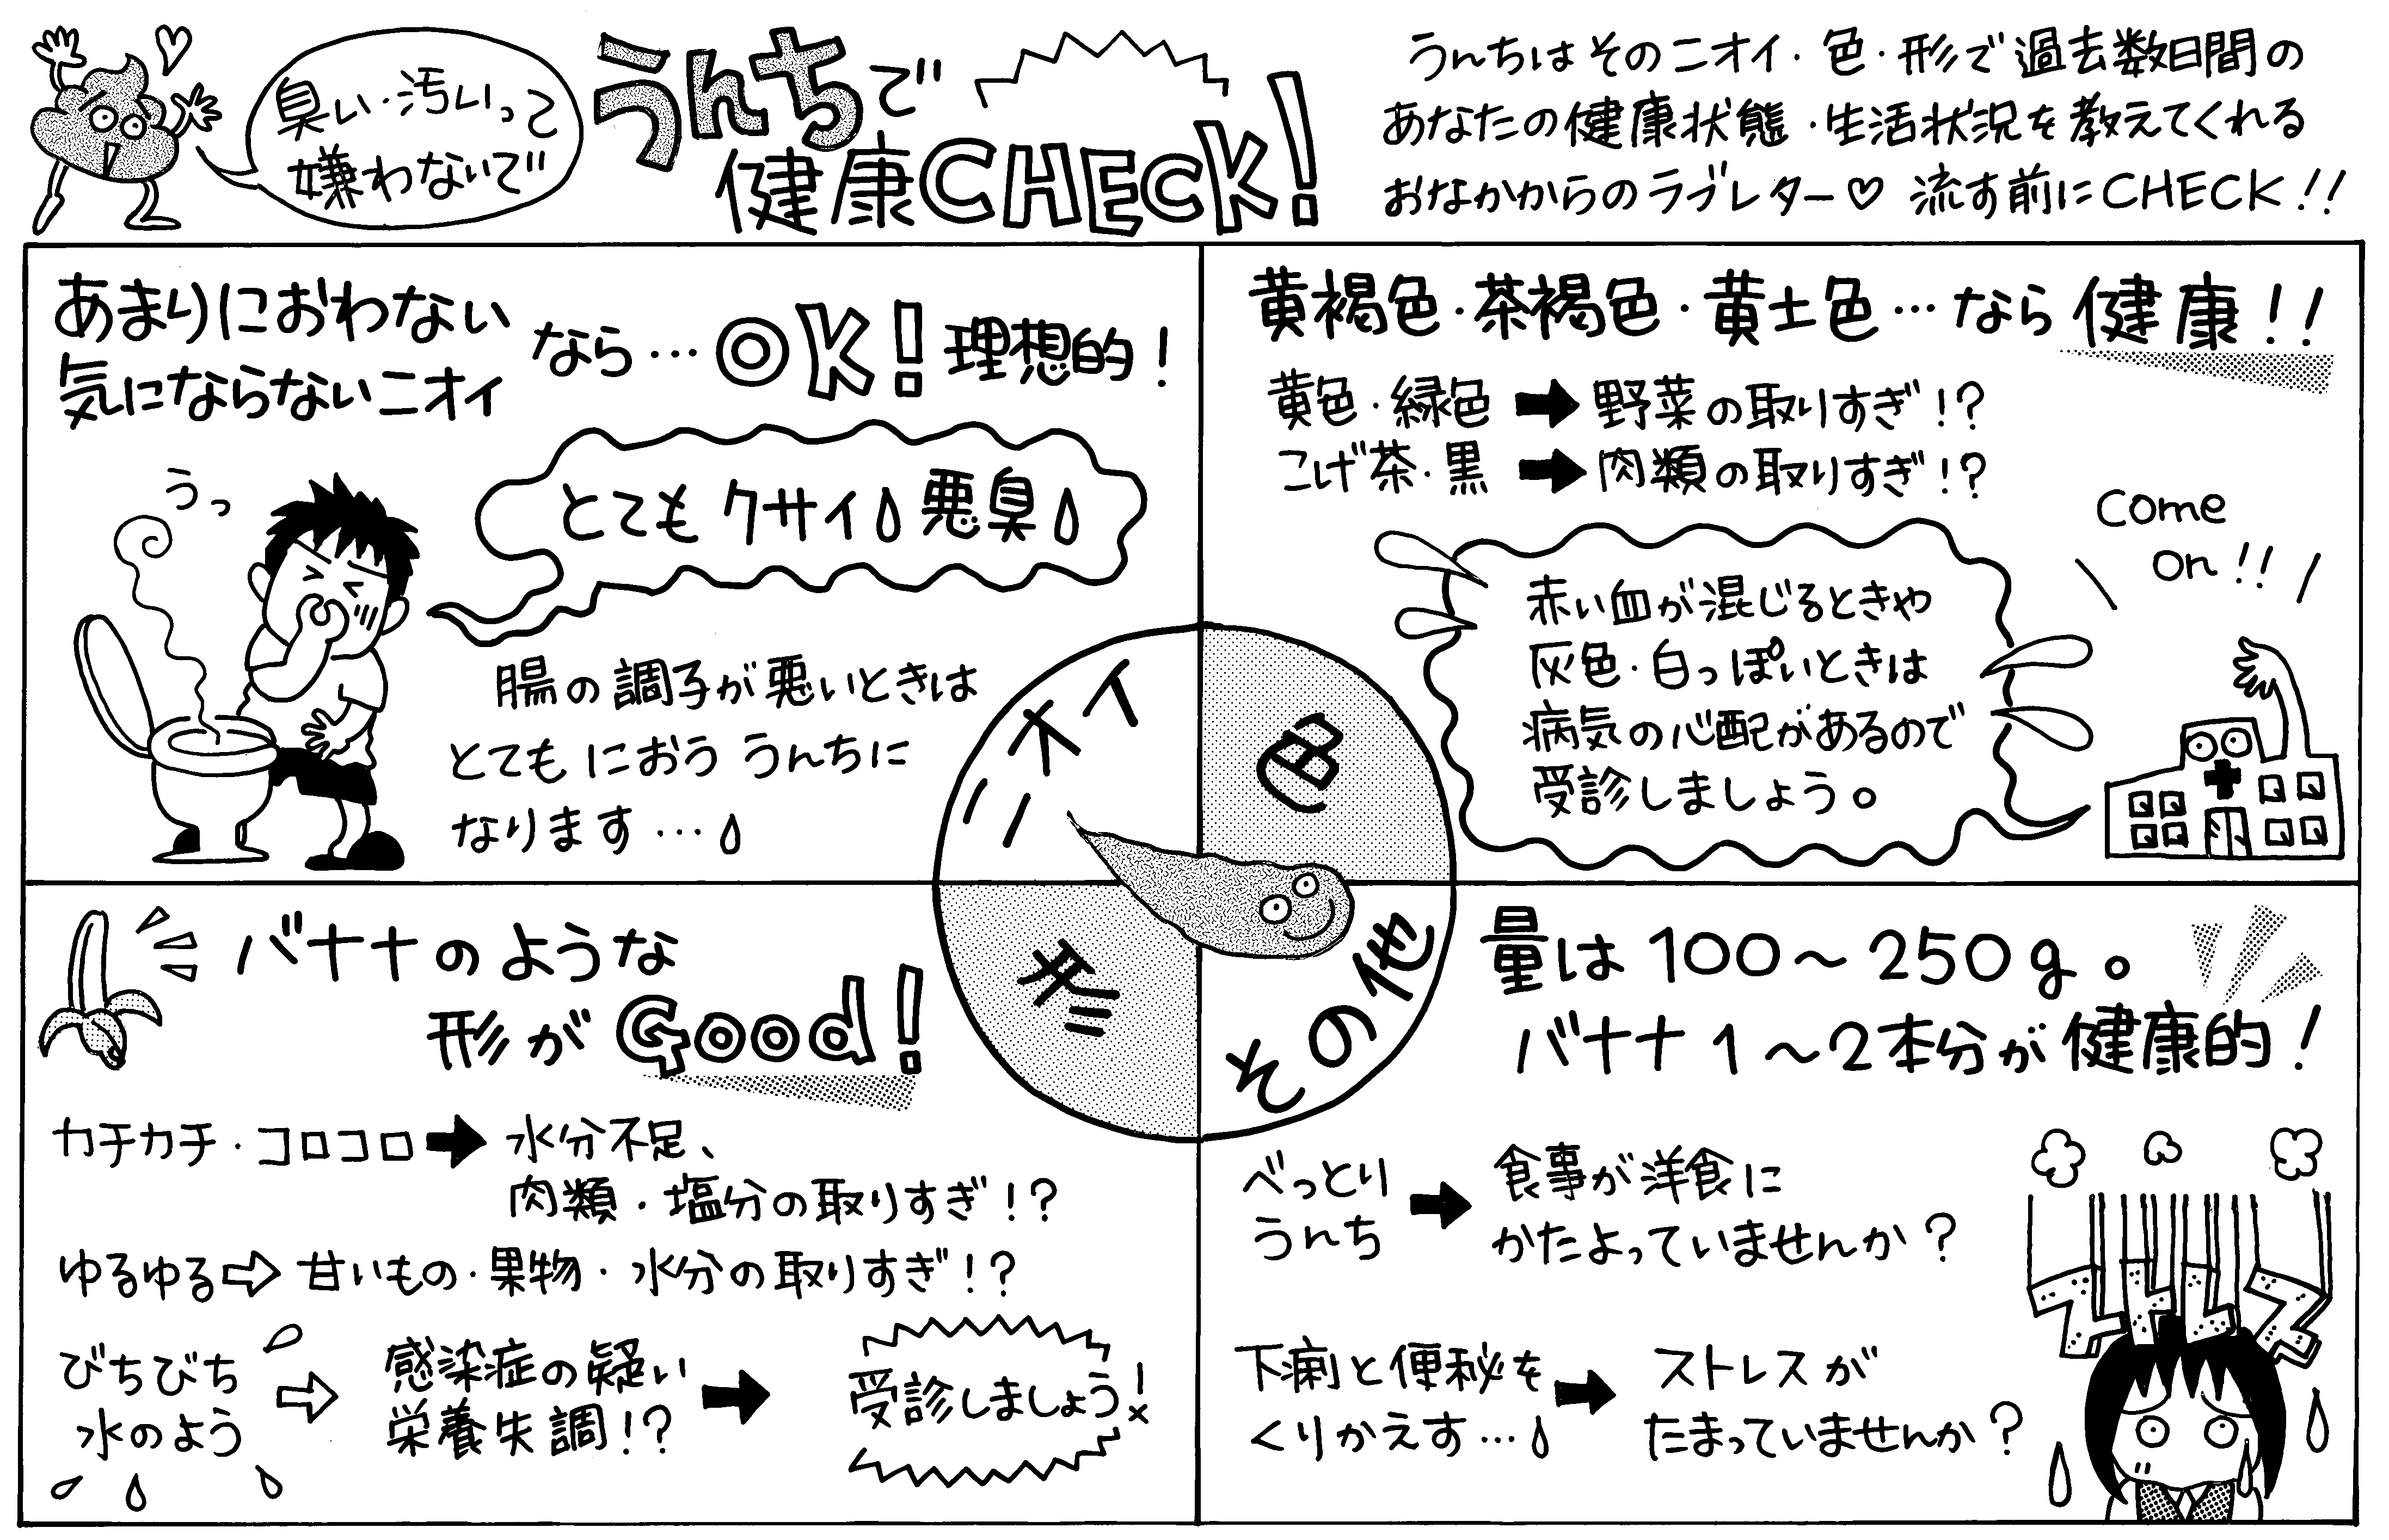 臭い・汚いって
嫌わないで
うんちで
健康CHECK!
うんちはそのニオイ・色・形で過去数日間の
あなたの健康状態・生活状況を教えてくれる
おなかからのラブレター♡ 流す前にCHECK!!
あまりにおわない
気にならないニオイ
なら…OK!理想的!
うっ
とてもクサイ 悪臭
腸の調子が悪いときは
とても におう うんちに
なります…
黄褐色・茶褐色・黄土色…なら健康!!
黄色・緑色➡野菜の取りすぎ!?
こげ茶・黒➡肉類の取りすぎ!?
赤い血が混じるときや
灰色・白っぽいときは
病気の心配があるので
受診しましょう。
Come
on!!
ニオイ
色
形
その他
バナナのような
形がGood!
カチカチ・コロコロ➡水分不足、
肉類・塩分の取りすぎ!?
ゆるゆる⇨甘いもの・果物・水分の取りすぎ!?
びちびち
水のよう
⇨
感染症の疑い
栄養失調!?
➡
受診しましょう!
量は100~250g。
バナナ1~2本分が健康的!
べっとり
うんち
➡
食事が洋食に
かたよっていませんか?
下痢と便秘を
くりかえす…
➡
ストレスが
たまっていませんか?